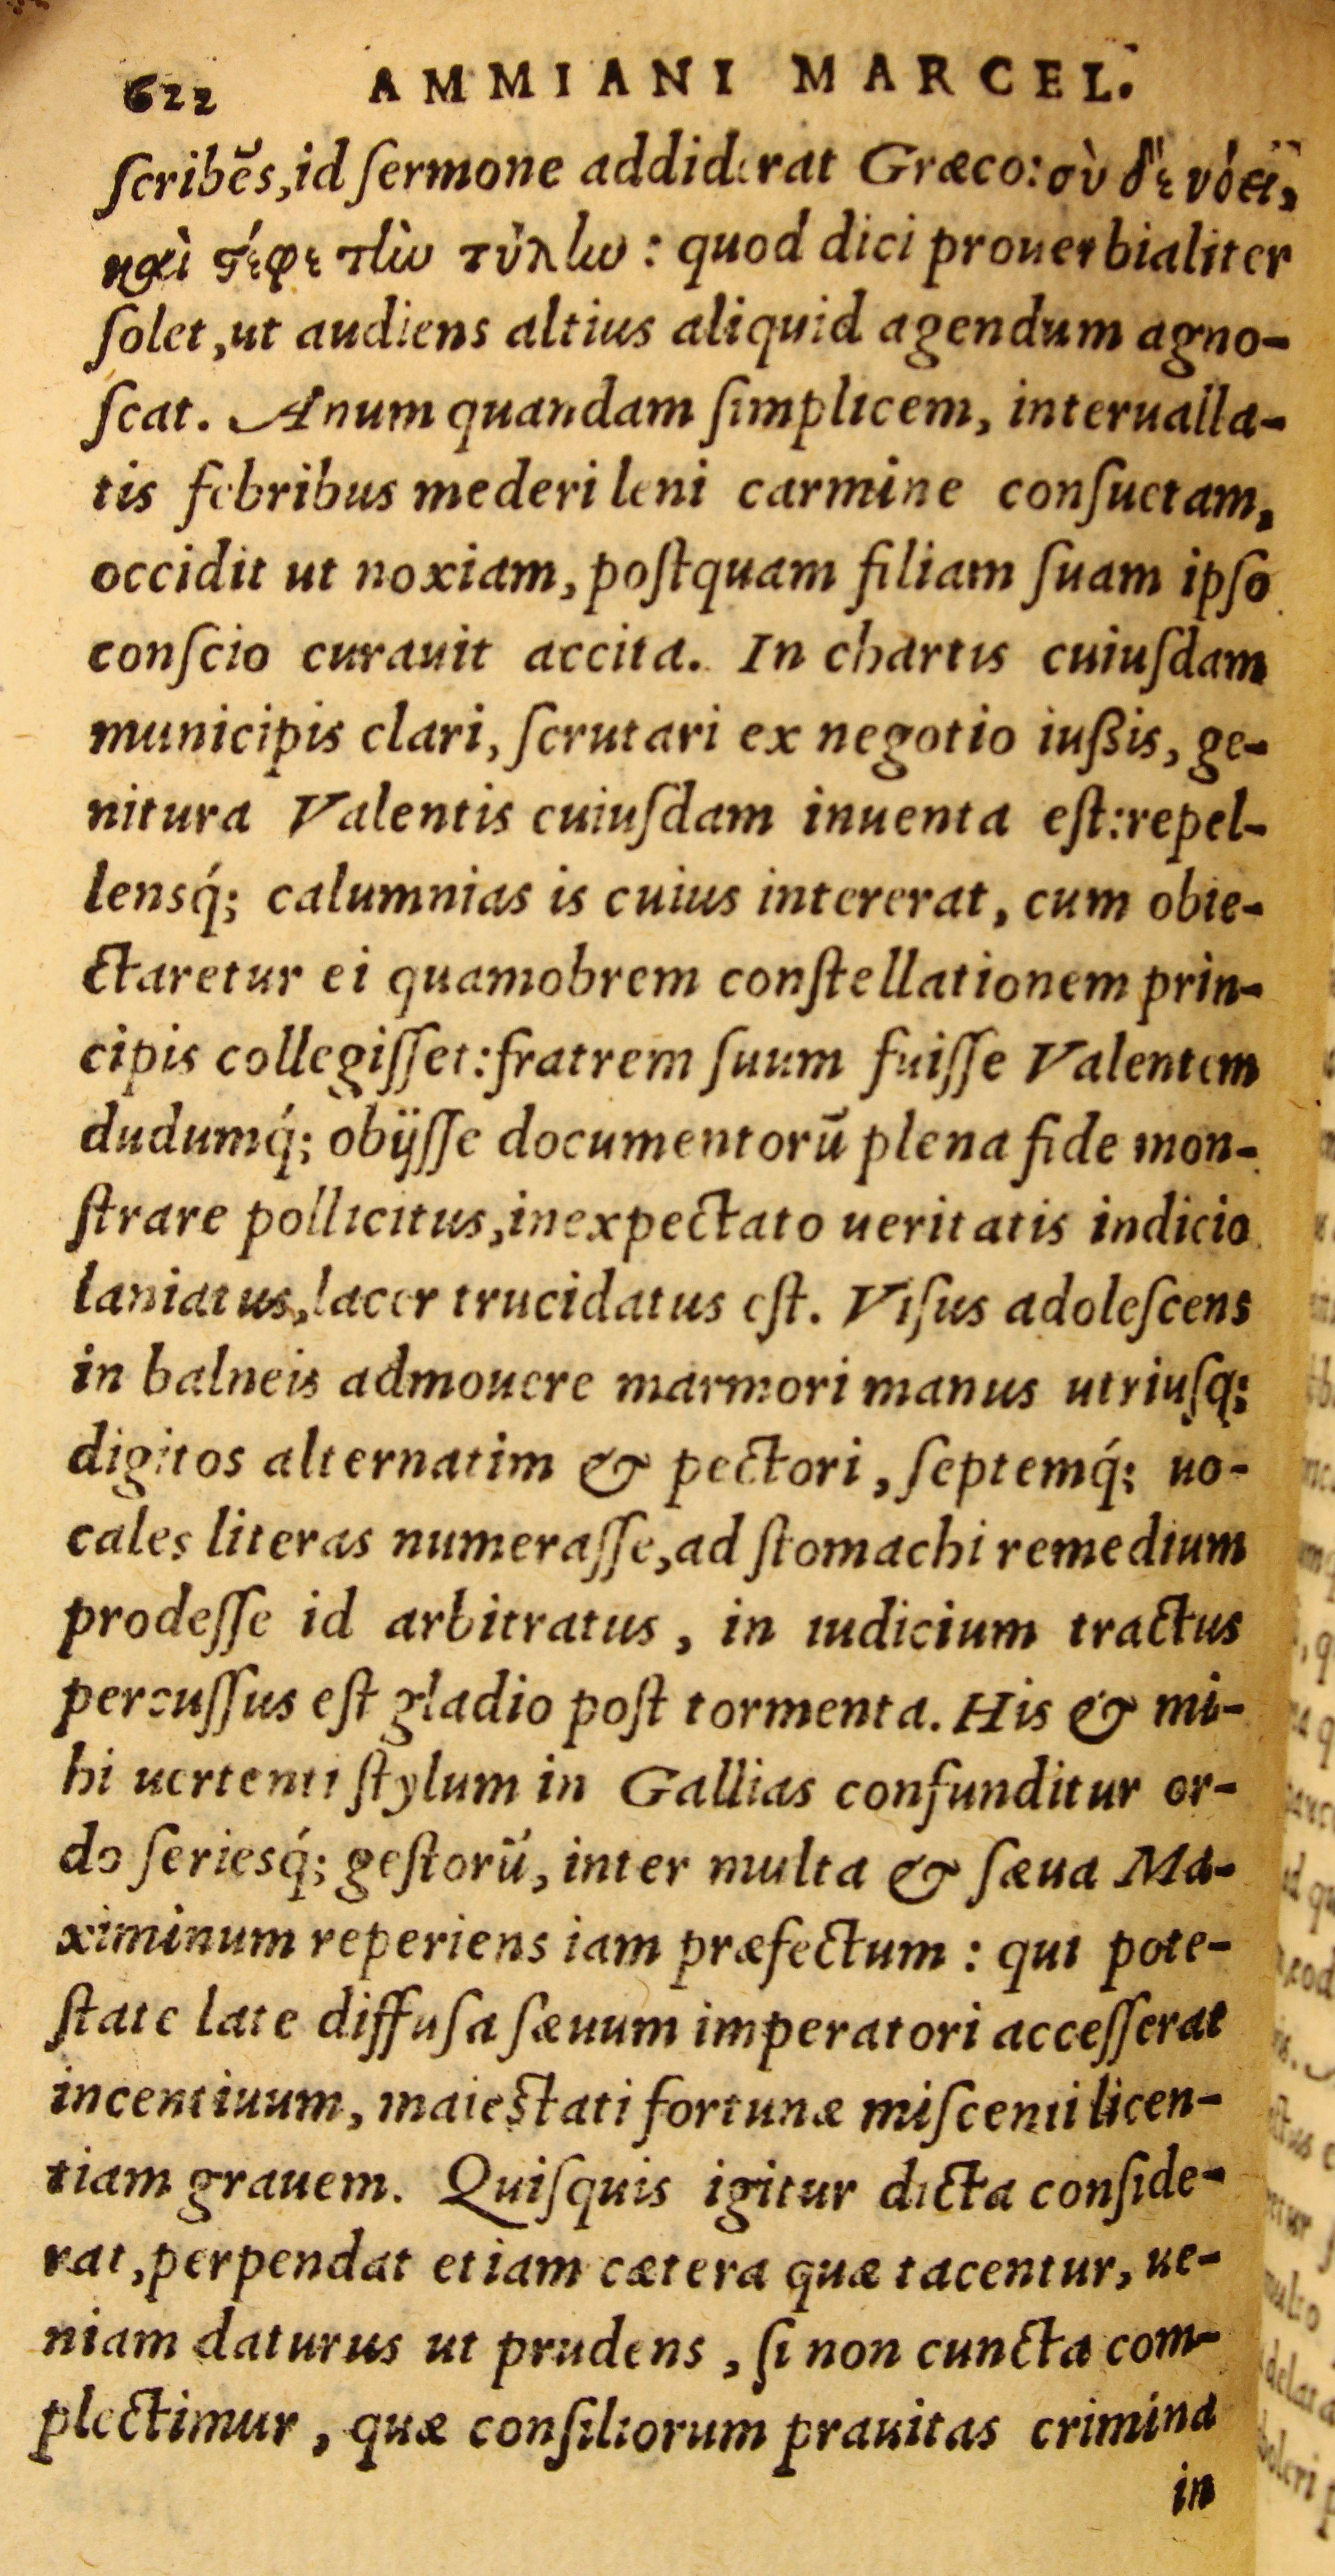 622 AMMIANI MARCEL.
ſcribēs,id ſermone addiderat Græco:σὺ δὲ νόει,
καὶ στέφε τὴν πύλην : quod dici prouerbialiter
ſolet,ut audiens altius aliquid agendum agno-
ſcat. Anum quandam ſimplicem, interualla-
tis febribus mederi leni carmine conſuetam,
occidit ut noxiam, poſtquam filiam ſuam ipſo
conſcio curauit accita. In chartis cuiuſdam
municipis clari, ſcrutari ex negotio iußis, ge-
nitura Valentis cuiuſdam inuenta eſt:repel-
lensq́; calumnias is cuius intererat, cum obie-
ctaretur ei quamobrem conſtellationem prin-
cipis collegiſſet:fratrem ſuum fuiſſe Valentem
dudumq́; obijſſe documentorū plena fide mon-
ſtrare pollicitus,inexpectato ueritatis indicio
laniatus,lacer trucidatus eſt. Viſus adoleſcens
in balneis admouere marmori manus utriuſq;
digitos alternatim & pectori, ſeptemq́; uo-
cales literas numeraſſe,ad ſtomachi remedium
prodeſſe id arbitratus, in iudicium tractus
percuſſus eſt gladio poſt tormenta. His & mi-
hi uertenti ſtylum in Gallias confunditur or-
do ſeriesq́; geſtorū, inter multa & ſæua Ma-
ximinum reperiens iam præfectum : qui pote-
ſtate late diffuſa ſæuum imperatori acceſſerat
incentiuum, maieſtati fortunæ miſcenti licen-
tiam grauem. Quiſquis igitur dicta conſide-
rat,perpendat etiam cætera quæ tacentur, ue-
niam daturus ut prudens, ſi non cuncta com-
plectimur, quæ conſiliorum prauitas crimina
in